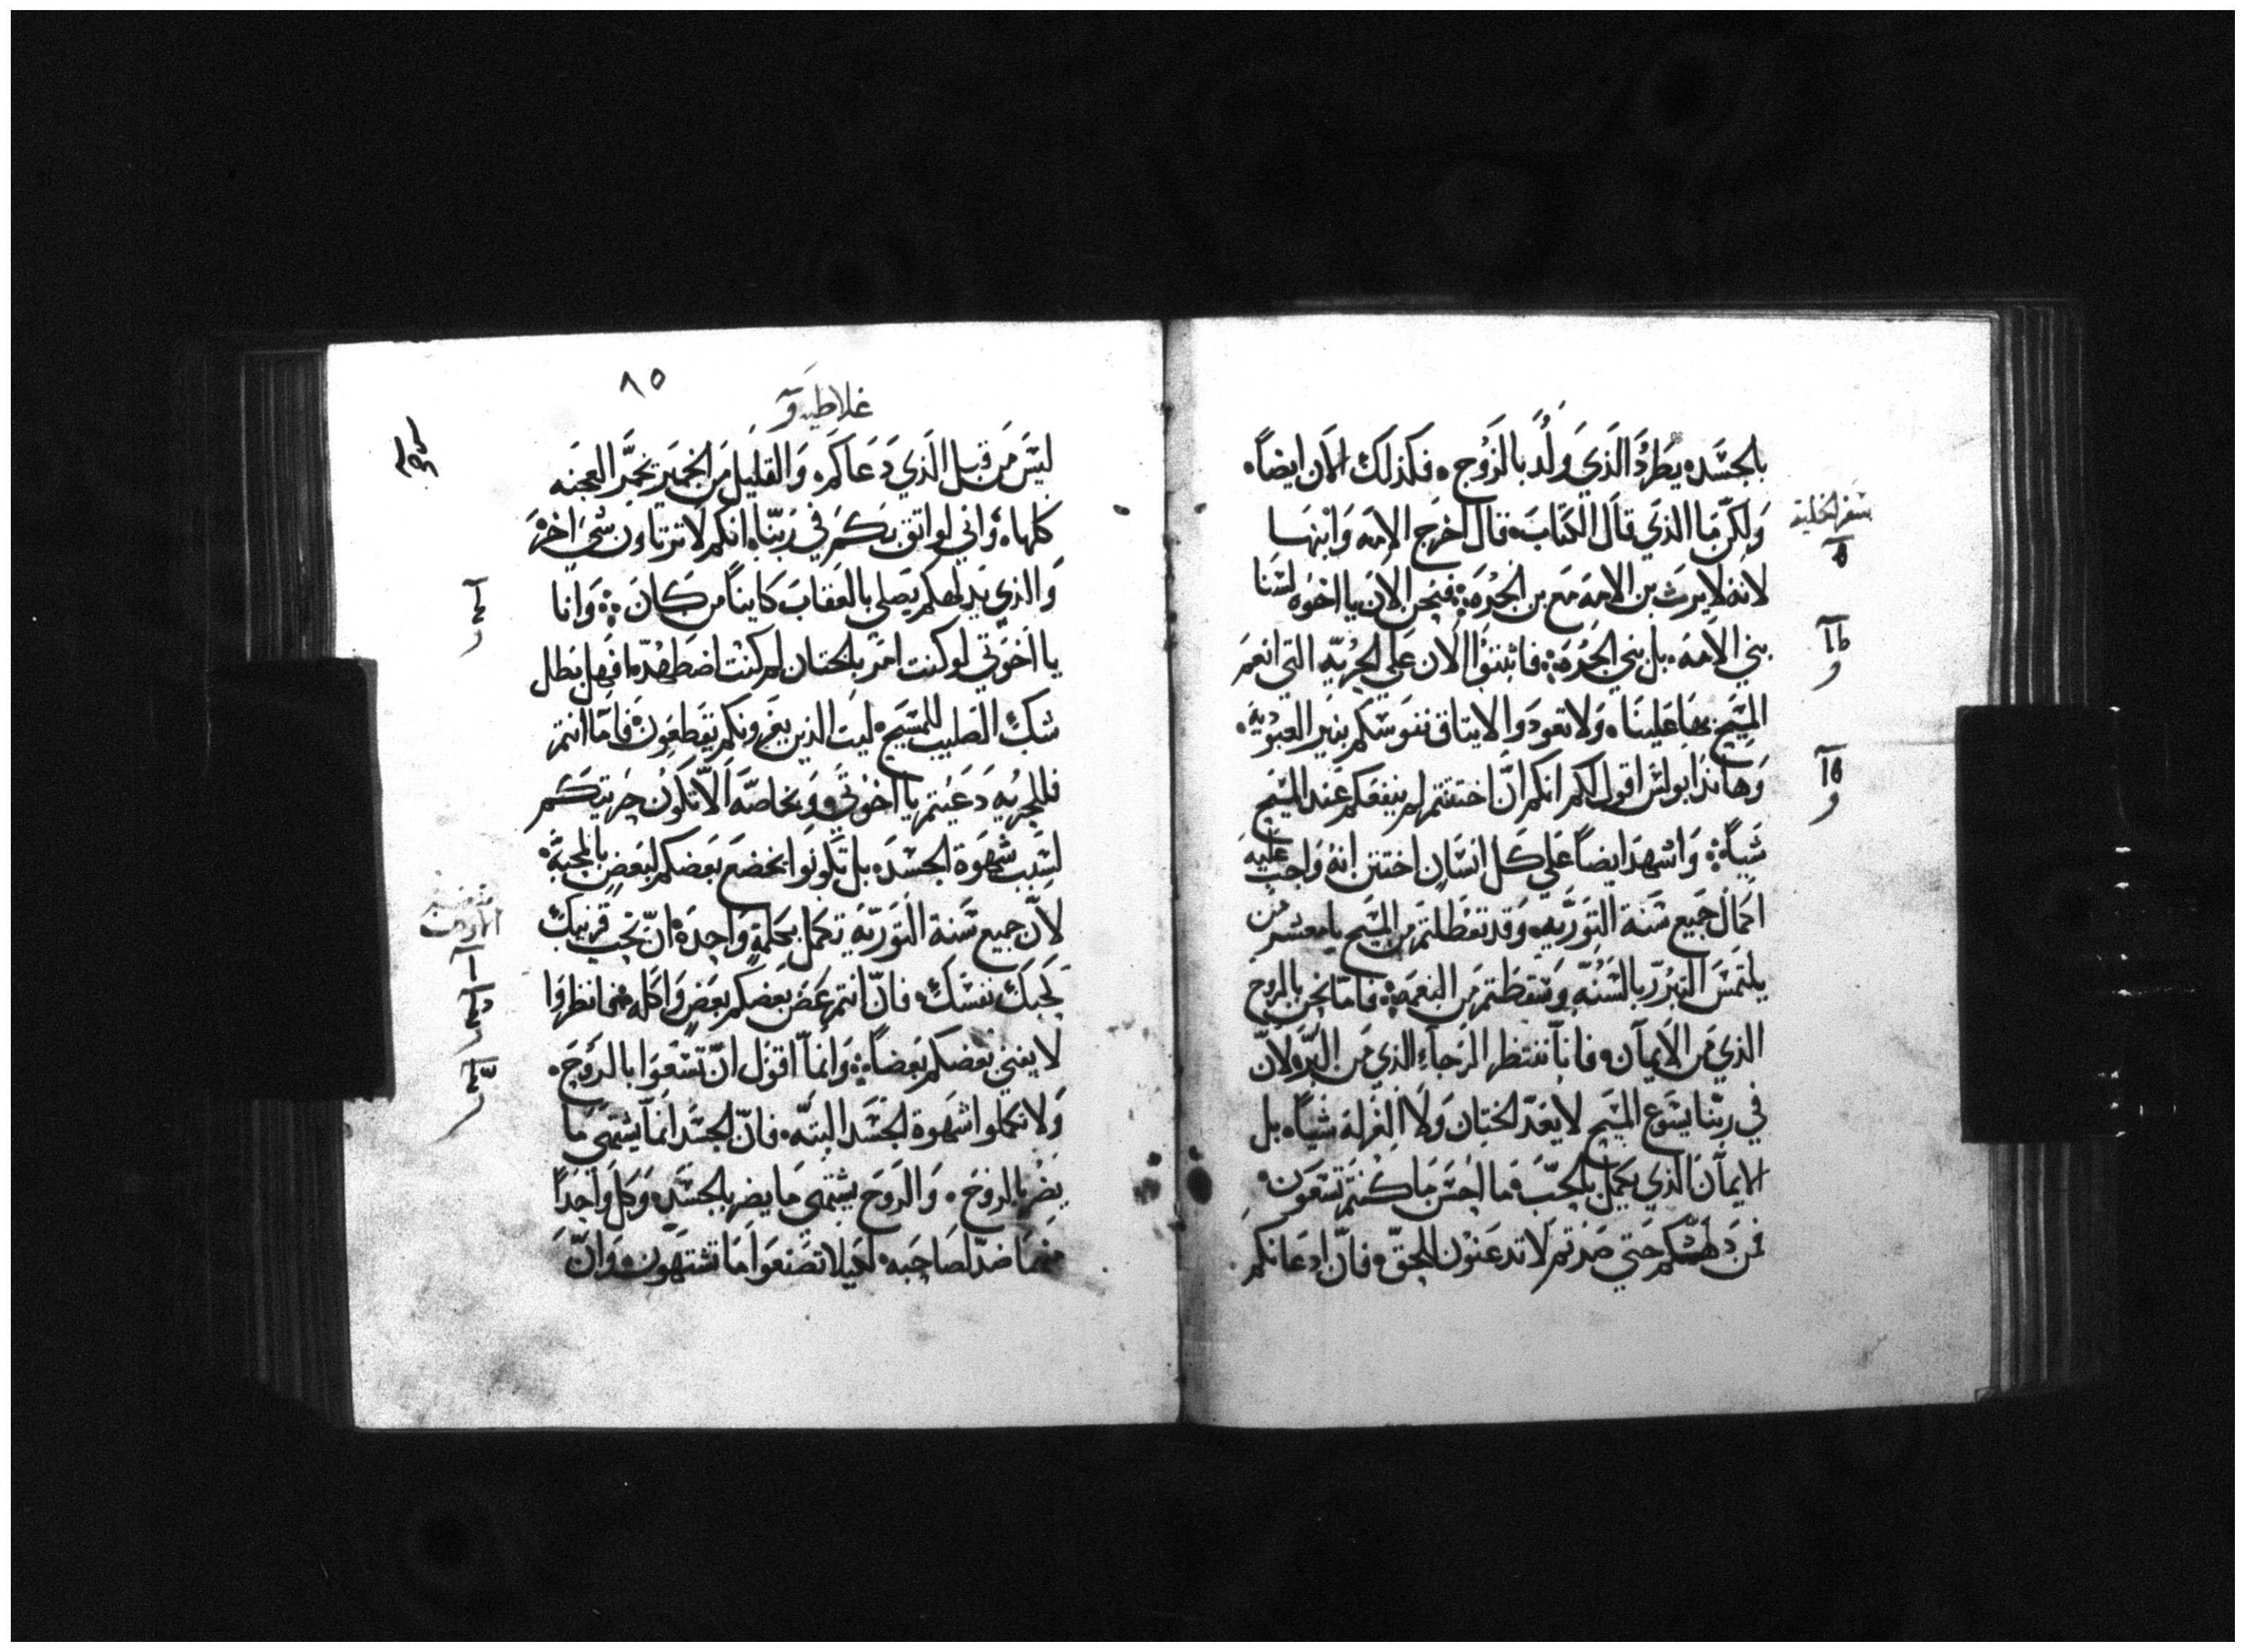 بالجسد يطرد الذي ولد بالروح فكذلك الان ايضاً
ولكن ما الذي قال الكتاب قال اخرج الامه وابنها
لانه لا يرث بن الامه مع بن الحره فنحن الان يا اخوه لسنا
بني الامه بل بني الحره فاثبتوا الان علي الحريه التي انعم
المسيح بها علينا ولا تعودوا الا يتاق نفوسكم بنير العبوديه
وهانذا بولس اقول لكم انكم ان اختتنتم لم ينفعكم عند المسيح
شياً واشهد ايضاً علي كل انسان اختتن انه واجب عليه
اكمال جميع سنة التوريه وقد تعطلتم من المسيح يا معشر من
يلتمس التبرر بالسنه وسقطتم من النعمه فاما نحن بالروح
الذي من الايمان فانا ننتظر الرجاء الذي من البر لان
في ربنا يسوع المسيح لا يعد الختان ولا الغرله شياً بل
الايمان الذي يكمل بالمحبه ما احسن ما كنتم تسعون
فمن دهشكم حتي صرتم لا تدعنون للحق فان ادعانكم
سفر الخليقه
٨٥
غلاطيه
ليس من قبل الذي دعاكم والقليل من الخمير يخمر العجنه
كلها واني لواثق بكم في ربنا انكم لا ترتاون شي اخر
والذي يدلهكم يصلي بالعقاب كايناً من كان وانا
يا اخوتي لو كنت امر بالختان لم كنت اضطهد فهل بطل
شك الصليب للمسيح ليت الذين يغرونكم يقطعون فاما انتم
فللحريه دعيتم يا اخوتي وبخاصه الا تكون حريتكم
لسبب شهوة الجسد بل تكونوا يخضع بعضكم لبعض بالمحبه
لان جميع سنة التوريه تكمل بكلمة واحده ان تحب قريبك
كحبك نفسك فان انتم عض بعضكم بعض واكله فانظروا
لا يفني بعضكم بعضاً وانما اقول ان تسعوا بالروح
ولا تكملوا شهوة الجسد البته فان الجسد انما يشتهي ما
يضر بالروح والروح يشتهي ما يضر بالجسد وكل واحداً
منهما ضد لصاحبه لكيلا تصنعوا ما تشتهون وان